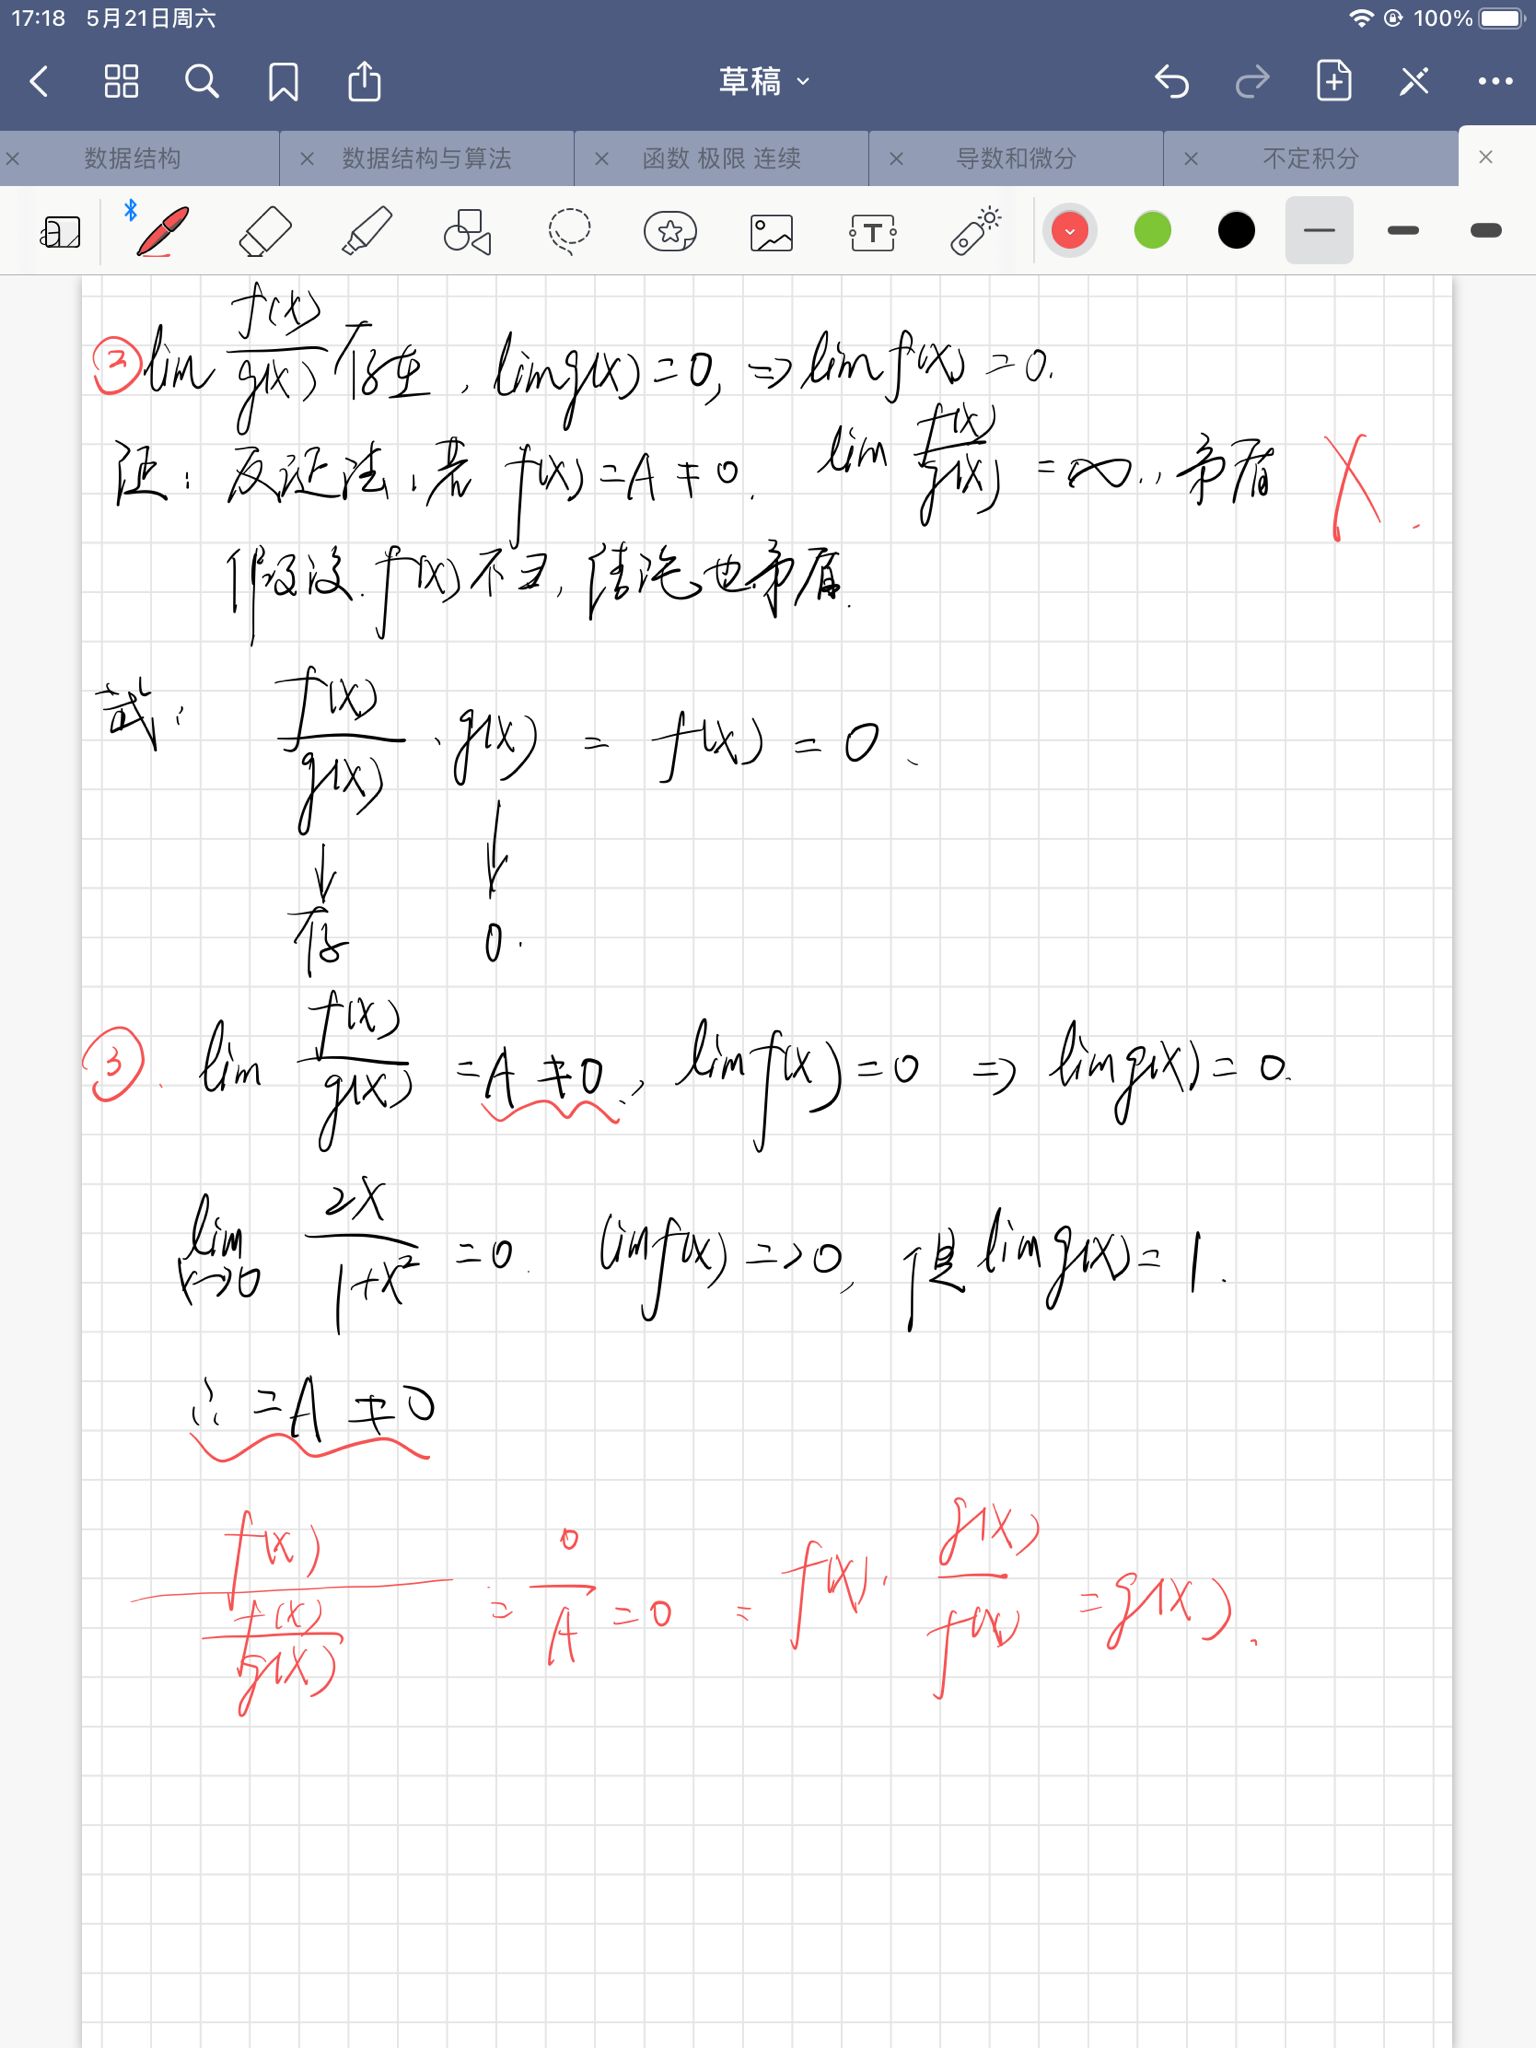 17:18 5月21日周六 100%
草稿
数据结构 数据结构与算法 函数 极限 连续 导数和微分 不定积分
② lim f(x)/g(x) 存在, lim g(x)=0, ⇒ lim f(x)=0.
证: 反证法, 若 f(x)=A≠0. lim f(x)/g(x) =∞., 矛盾 X.
假设 f(x)不∃, 情况也矛盾.
或: f(x)/g(x) · g(x) = f(x) = 0.
↓ ↓
存 0.
③. lim f(x)/g(x) =A≠0., lim f(x)=0 ⇒ lim g(x)=0.
lim x→0 2x/1+x² =0. lim f(x)=>0, 但 lim g(x)=1.
∴ =A≠0
f(x)/(f(x)/g(x)) = 0/A =0 = f(x)· g(x)/f(x) =g(x).